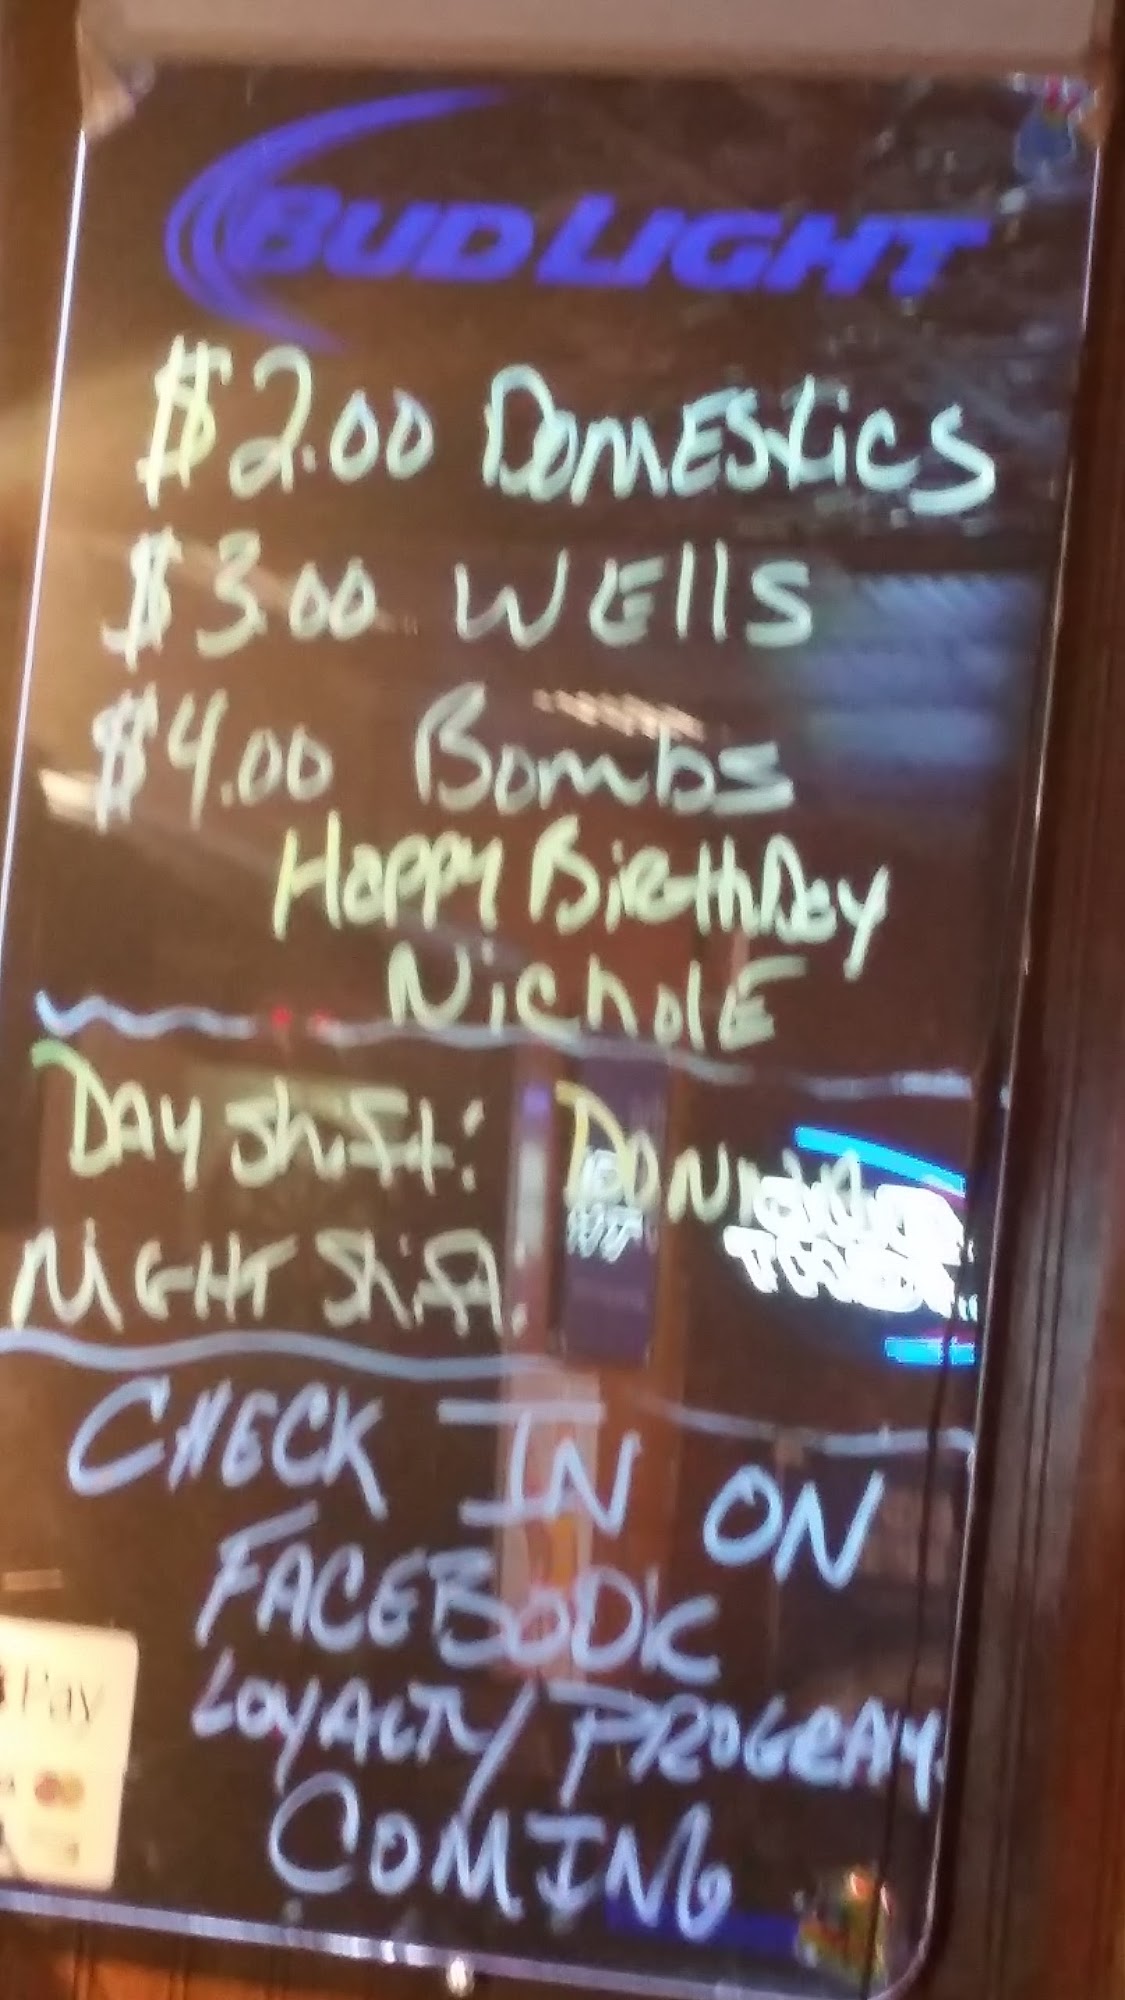 BUD LIGHT
$2.00 DOMESTICS
$3.00 WELLS
$4.00 Bombs
Happy BirthDay
NicholE
DAY Shift:
NIGHT Shift:
CHECK IN ON
FACEBOOK
LOYALTY PROGRAM
COMING
Pay